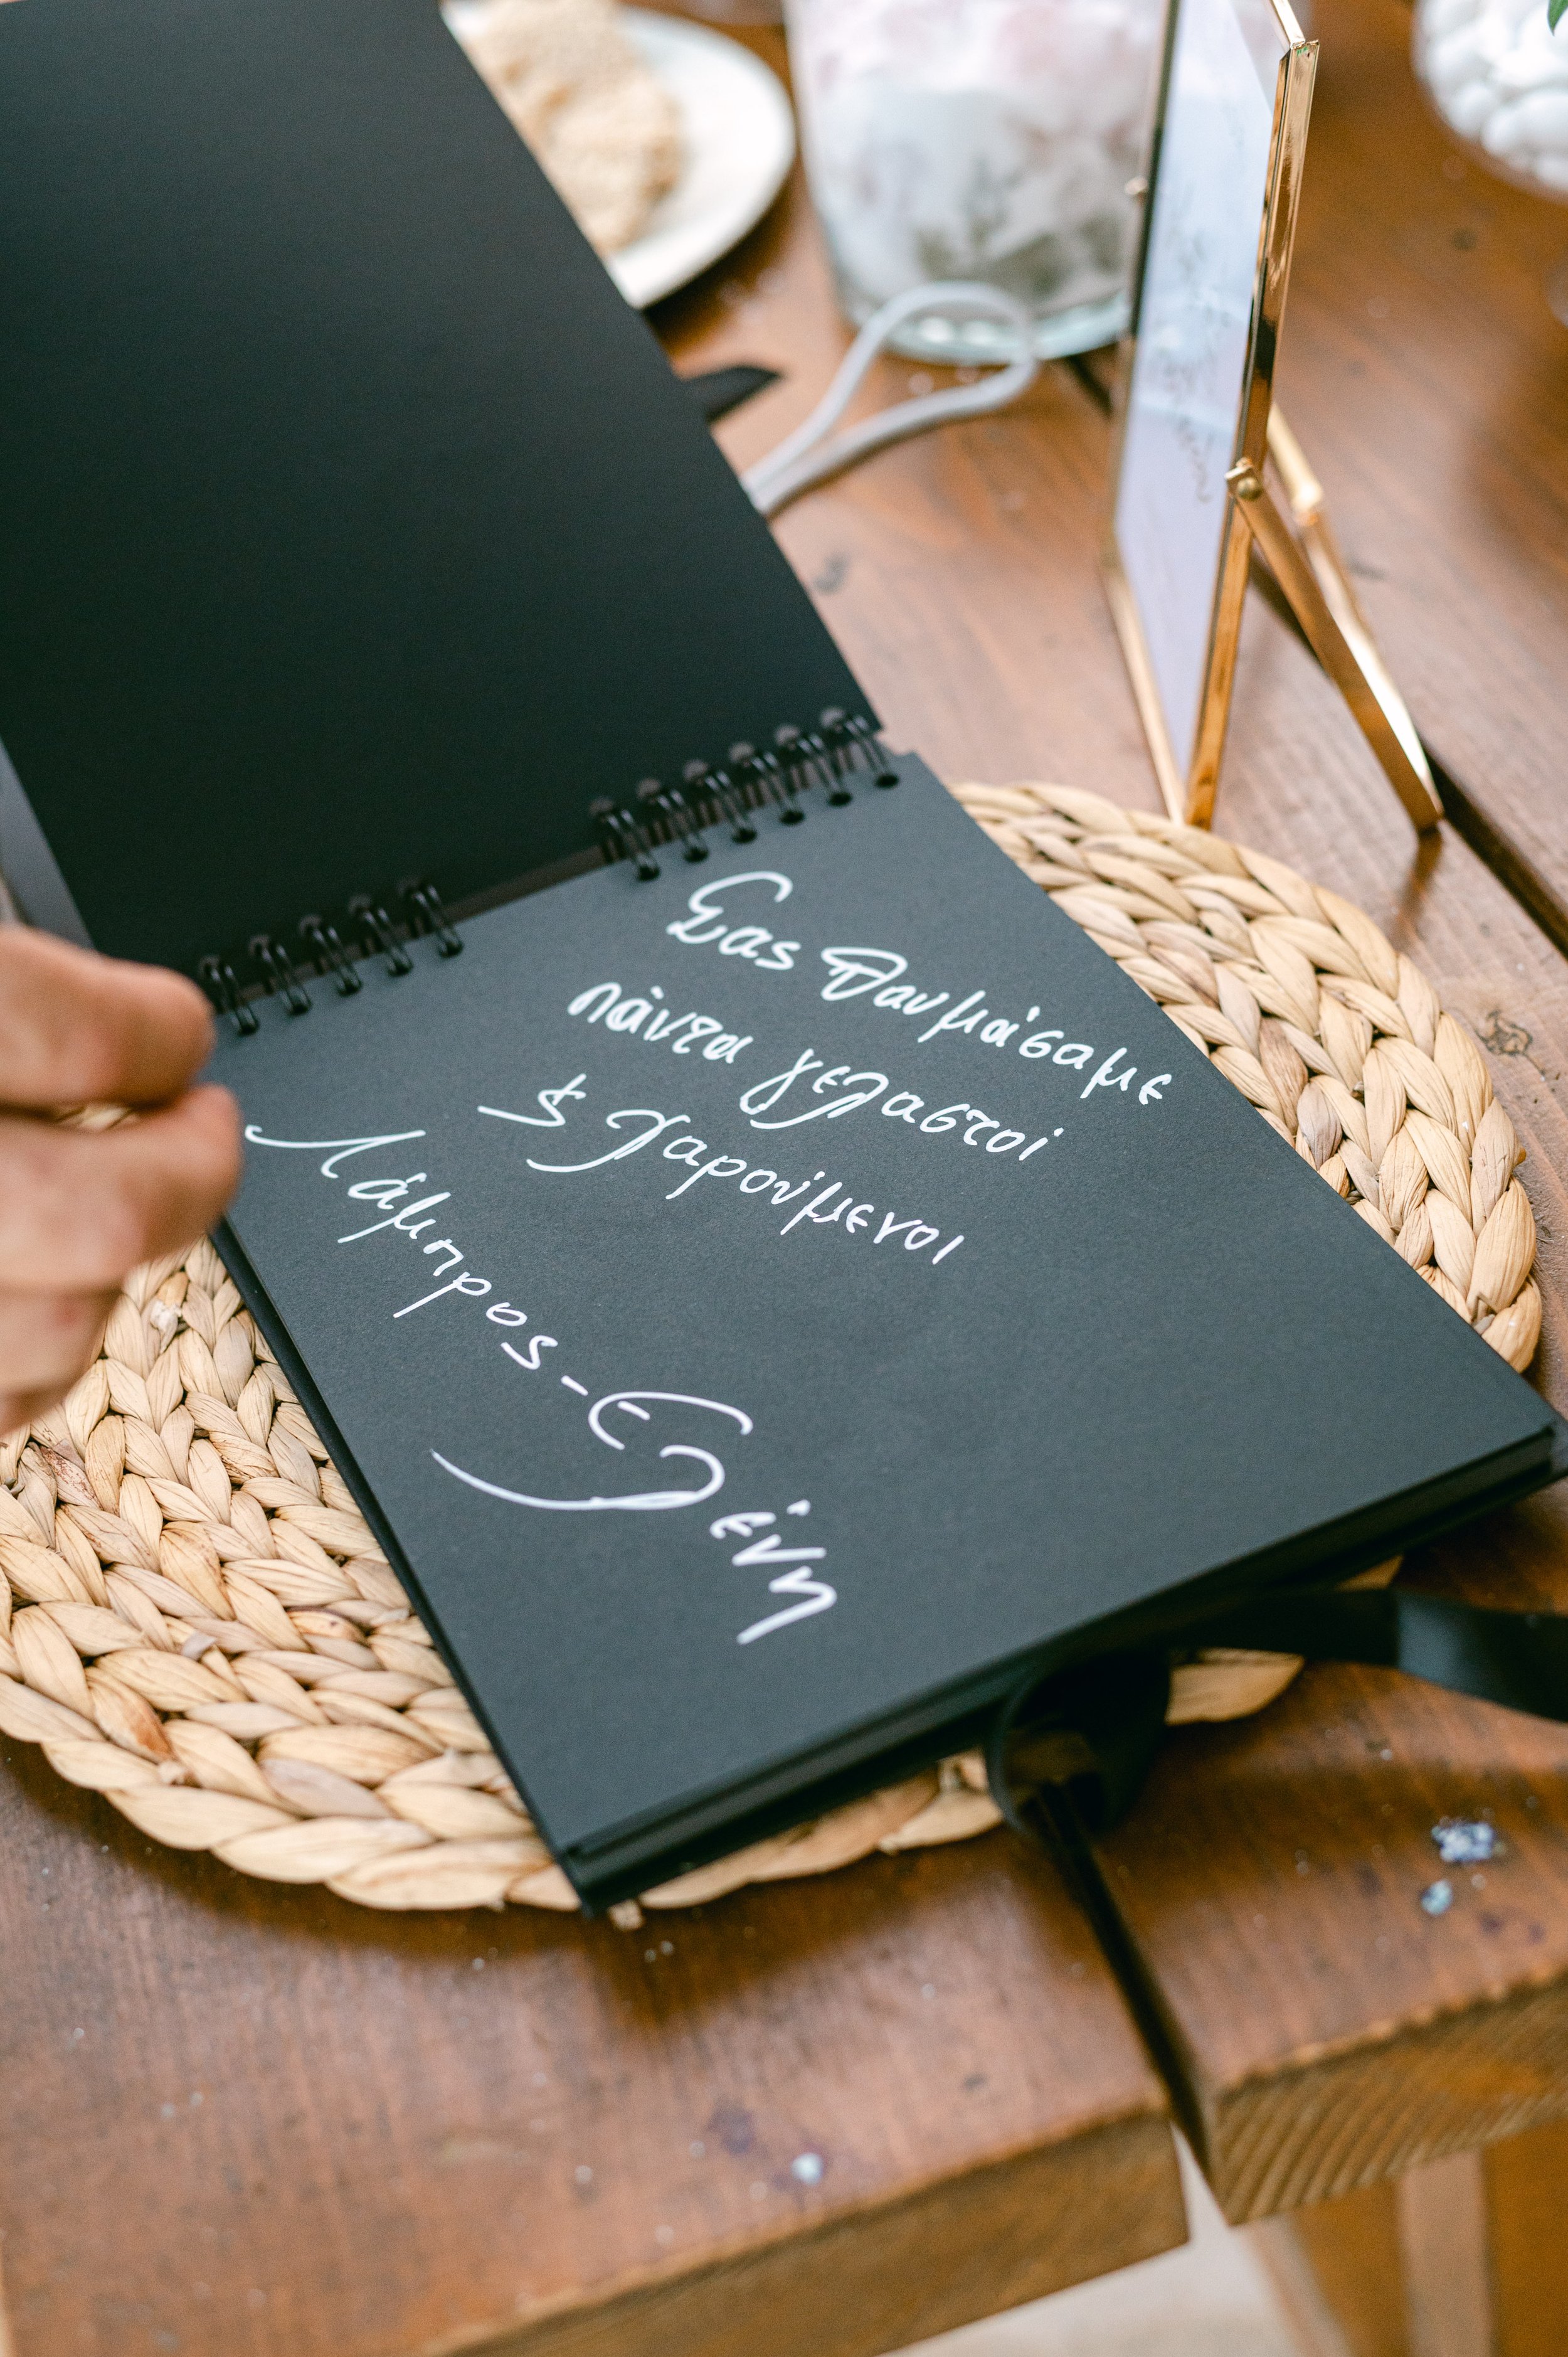 Σας θαυμάσαμε
πάντα γελαστοί
& χαρούμενοι
Λάμπρος - Ελένη